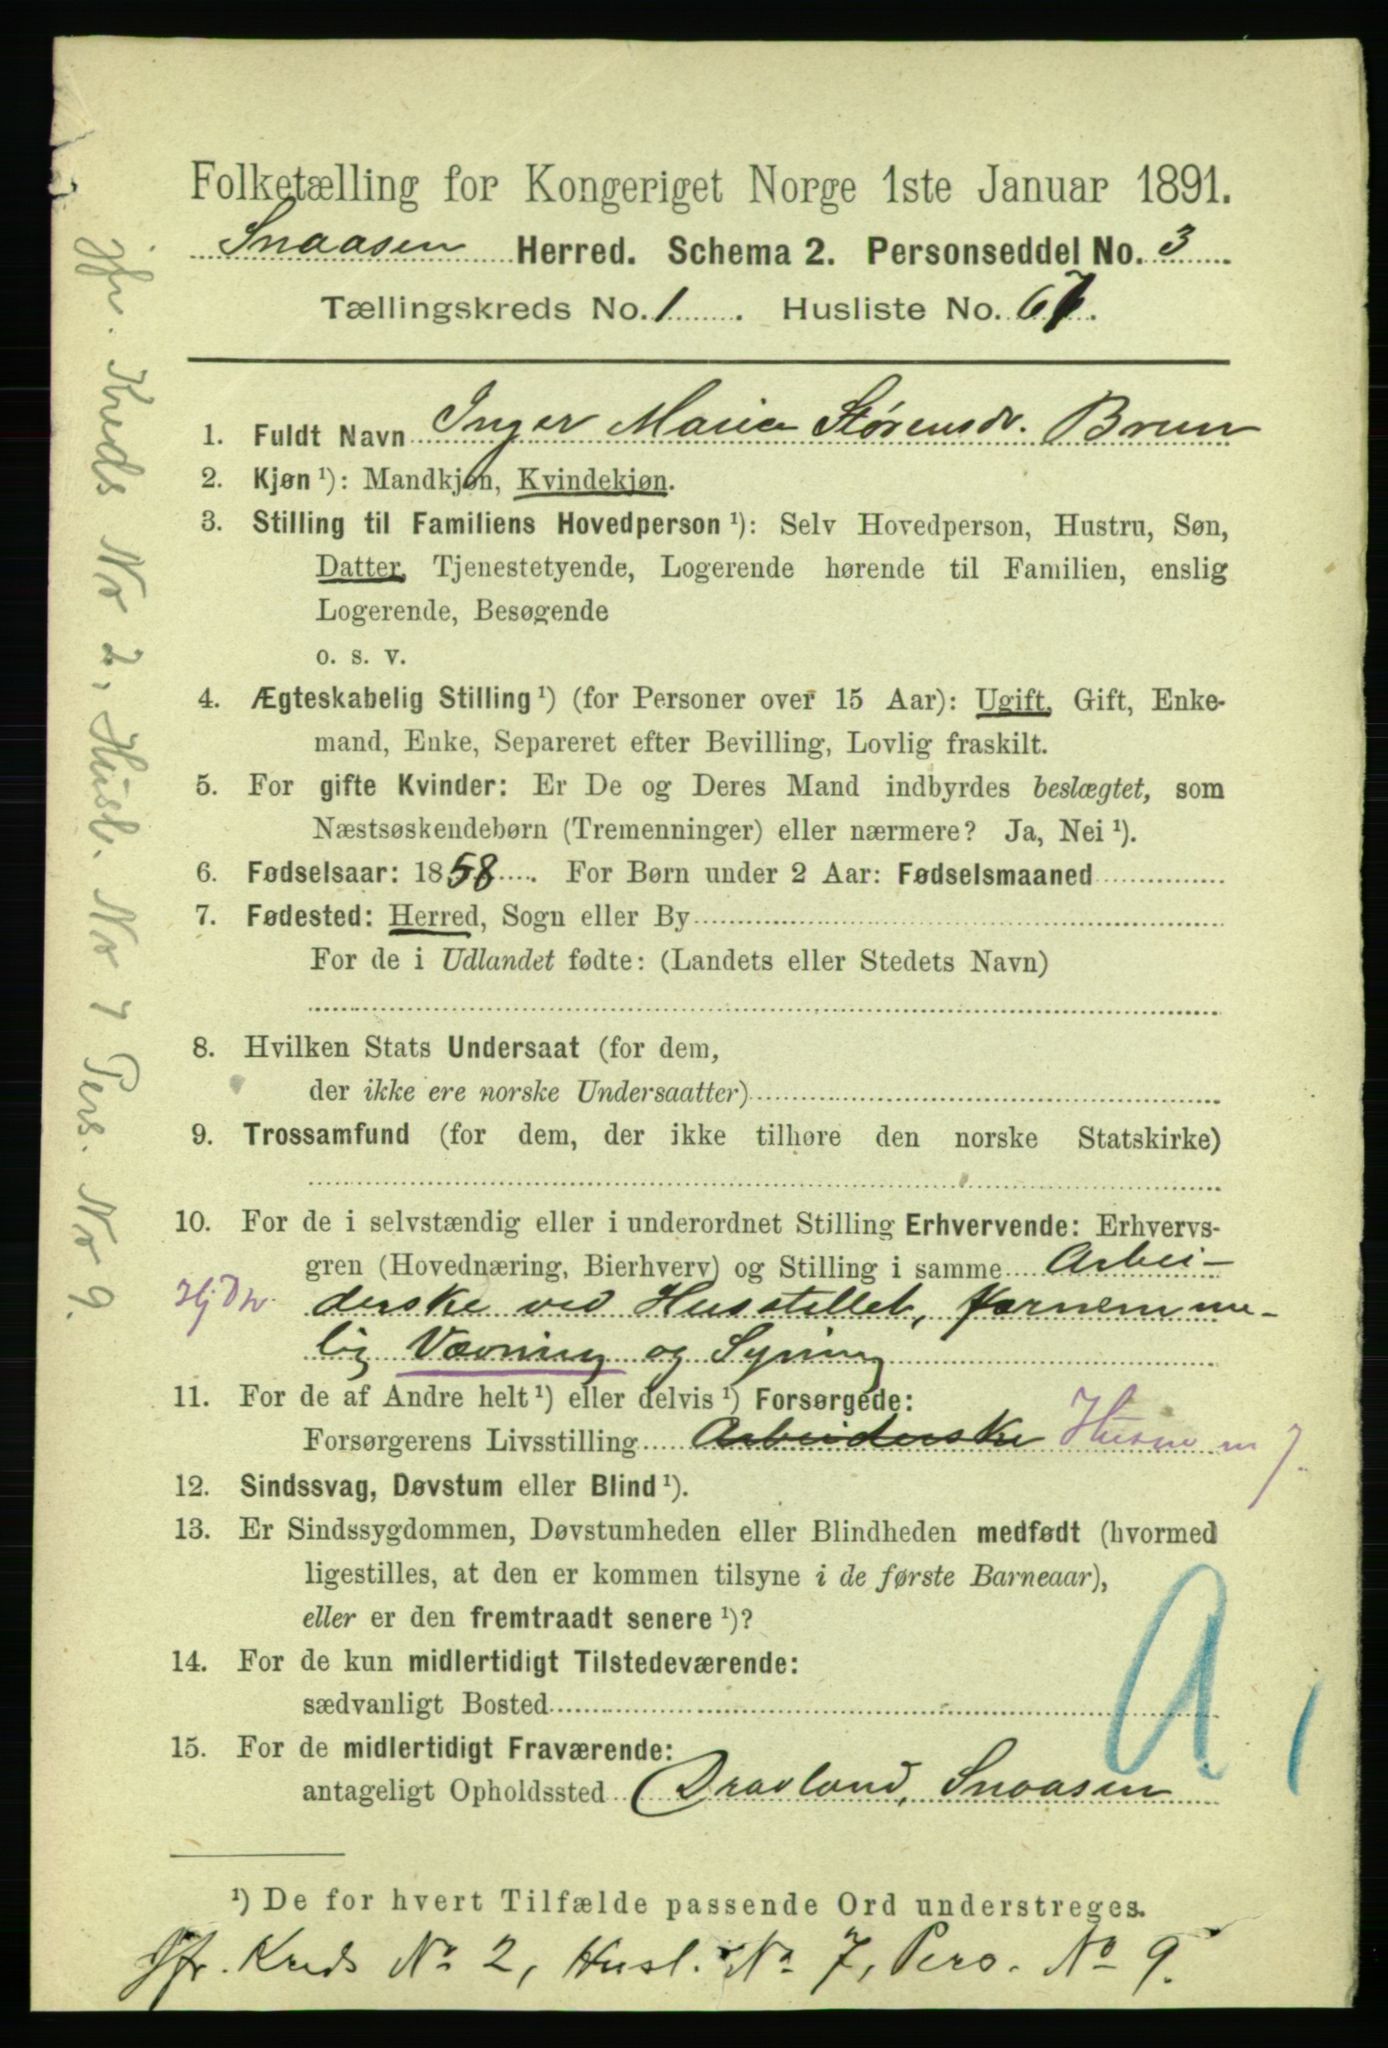 Folketælling for Kongeriget Norge 1ste Januar 1891.
Snaasen Herred. Schema 2. Personseddel No. 3
Tællingskreds No. 1. Husliste No.
1. Fuldt Navn Inger Maria Størensdr. Brun
2. Kjøn ¹): Mandkjøn, Kvindekjøn.
3. Stilling til Familiens Hovedperson ¹): Selv Hovedperson, Hustru, Søn,
Datter, Tjenestetyende, Logerende hørende til Familien, enslig
Logerende, Besøgende
o. s. v.
4. Ægteskabelig Stilling ¹) (for Personer over 15 Aar): Ugift, Gift, Enke-
mand, Enke, Separeret efter Bevilling, Lovlig fraskilt.
5. For gifte Kvinder: Er De og Deres Mand indbyrdes beslægtet, som
Næstsøskendebørn (Tremenninger) eller nærmere? Ja, Nei ¹).
6. Fødselsaar: 1858. For Børn under 2 Aar: Fødselsmaaned
7. Fødested: Herred, Sogn eller By
For de i Udlandet fødte: (Landets eller Stedets Navn)
8. Hvilken Stats Undersaat (for dem,
der ikke ere norske Undersaatter)
9. Trossamfund (for dem, der ikke tilhøre den norske Statskirke)
10. For de i selvstændig eller i underordnet Stilling Erhvervende: Erhvervs-
gren (Hovednæring, Bierhverv) og Stilling i samme Arbei-
derske ved Husstellet, fornemme-
lig Vævning og Syning
11. For de af Andre helt ¹) eller delvis ¹) Forsørgede:
Forsørgerens Livsstilling Arbeiderske
12. Sindssvag, Døvstum eller Blind ¹).
13. Er Sindssygdommen, Døvstumheden eller Blindheden medfødt (hvormed
ligestilles, at den er kommen tilsyne i de første Barneaar),
eller er den fremtraadt senere ¹)?
14. For de kun midlertidigt Tilstedeværende:
sædvanligt Bosted
15. For de midlertidigt Fraværende:
antageligt Opholdssted Dravland, Snaasen
A 1
¹) De for hvert Tilfælde passende Ord understreges.
Jfr. Kreds No 2, Husl. No 7, Pers. No 9.
jfr. Kreds No 2, Husl. No 7 Pers. No 9.